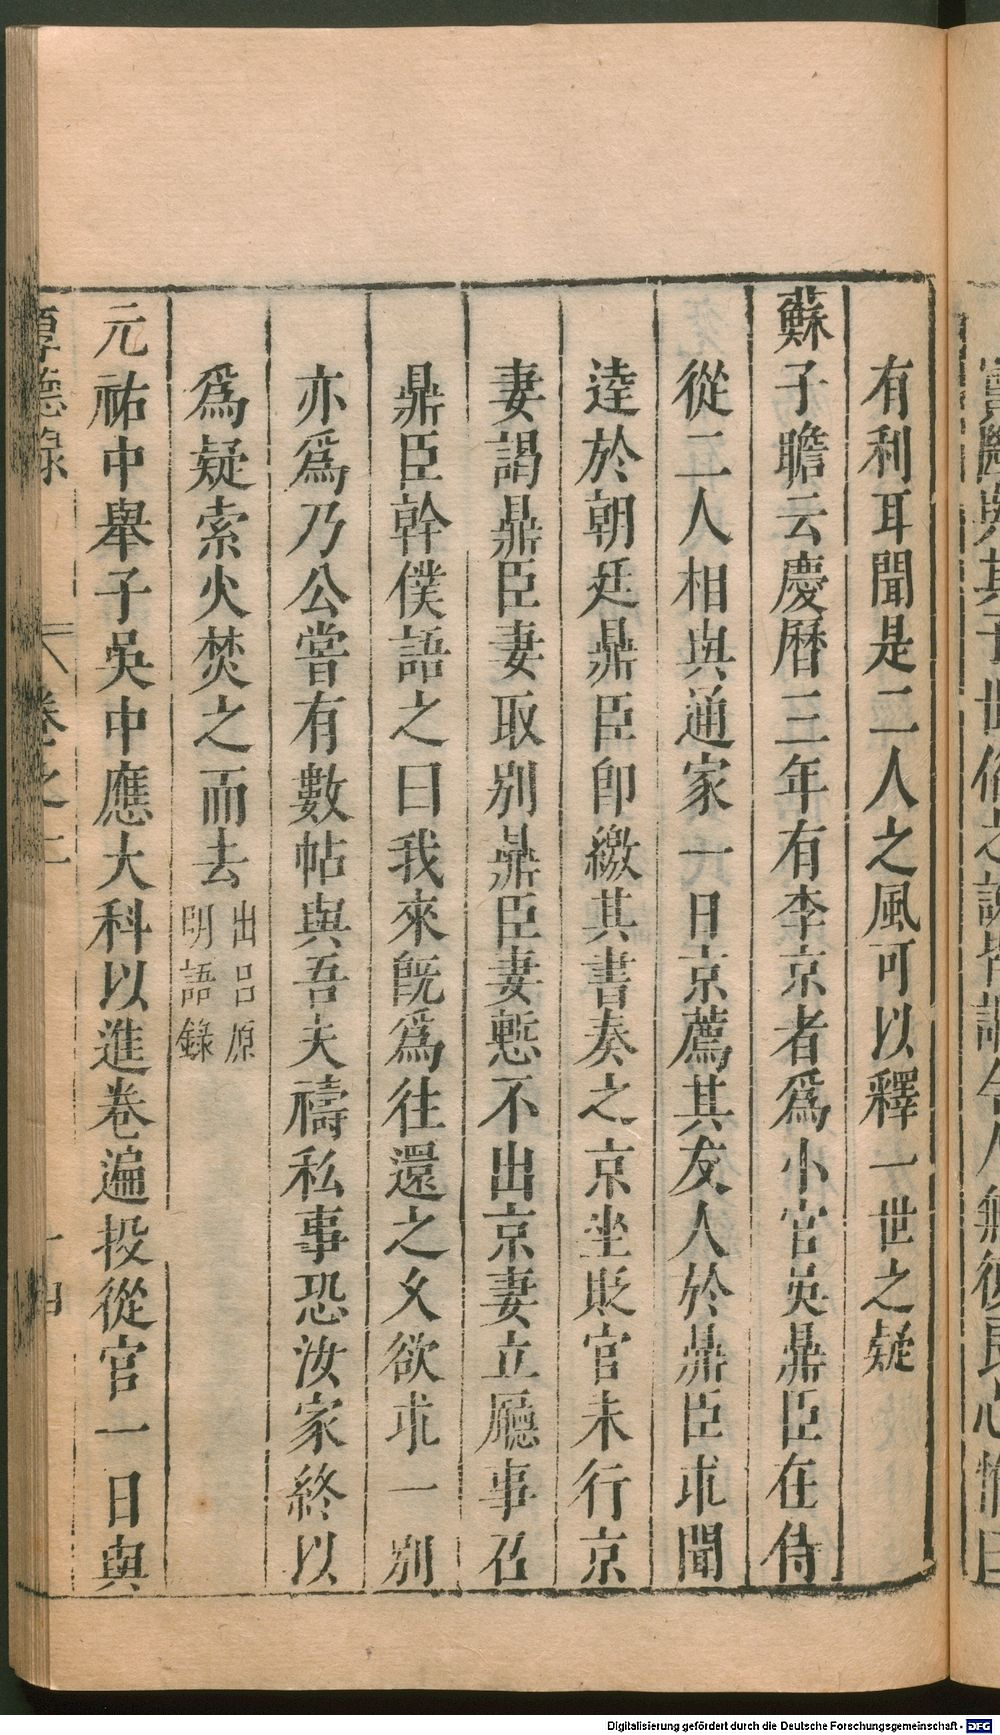 有利耳聞是二人之風可以釋一世之疑
蘇子瞻云慶曆三年有李京者爲小官吳鼎臣在侍
從二人相與通家一日京薦其友人於鼎臣求聞
達於朝廷鼎臣卽繳其書奏之京坐貶官未行京
妻謁鼎臣妻取别鼎臣妻慙不出京妻立廳事召
鼎臣幹僕語之曰我來旣爲往還之久欲求一别
亦爲乃公嘗有數帖與吾夫禱私事恐汝家終以
爲疑索火焚之而去
出呂原
明語錄
元祐中舉子吳中應大科以進卷遍投從官一日與
卷之二
十四
Digitalisierung gefördert durch die Deutsche Forschungsgemeinschaft - DFG